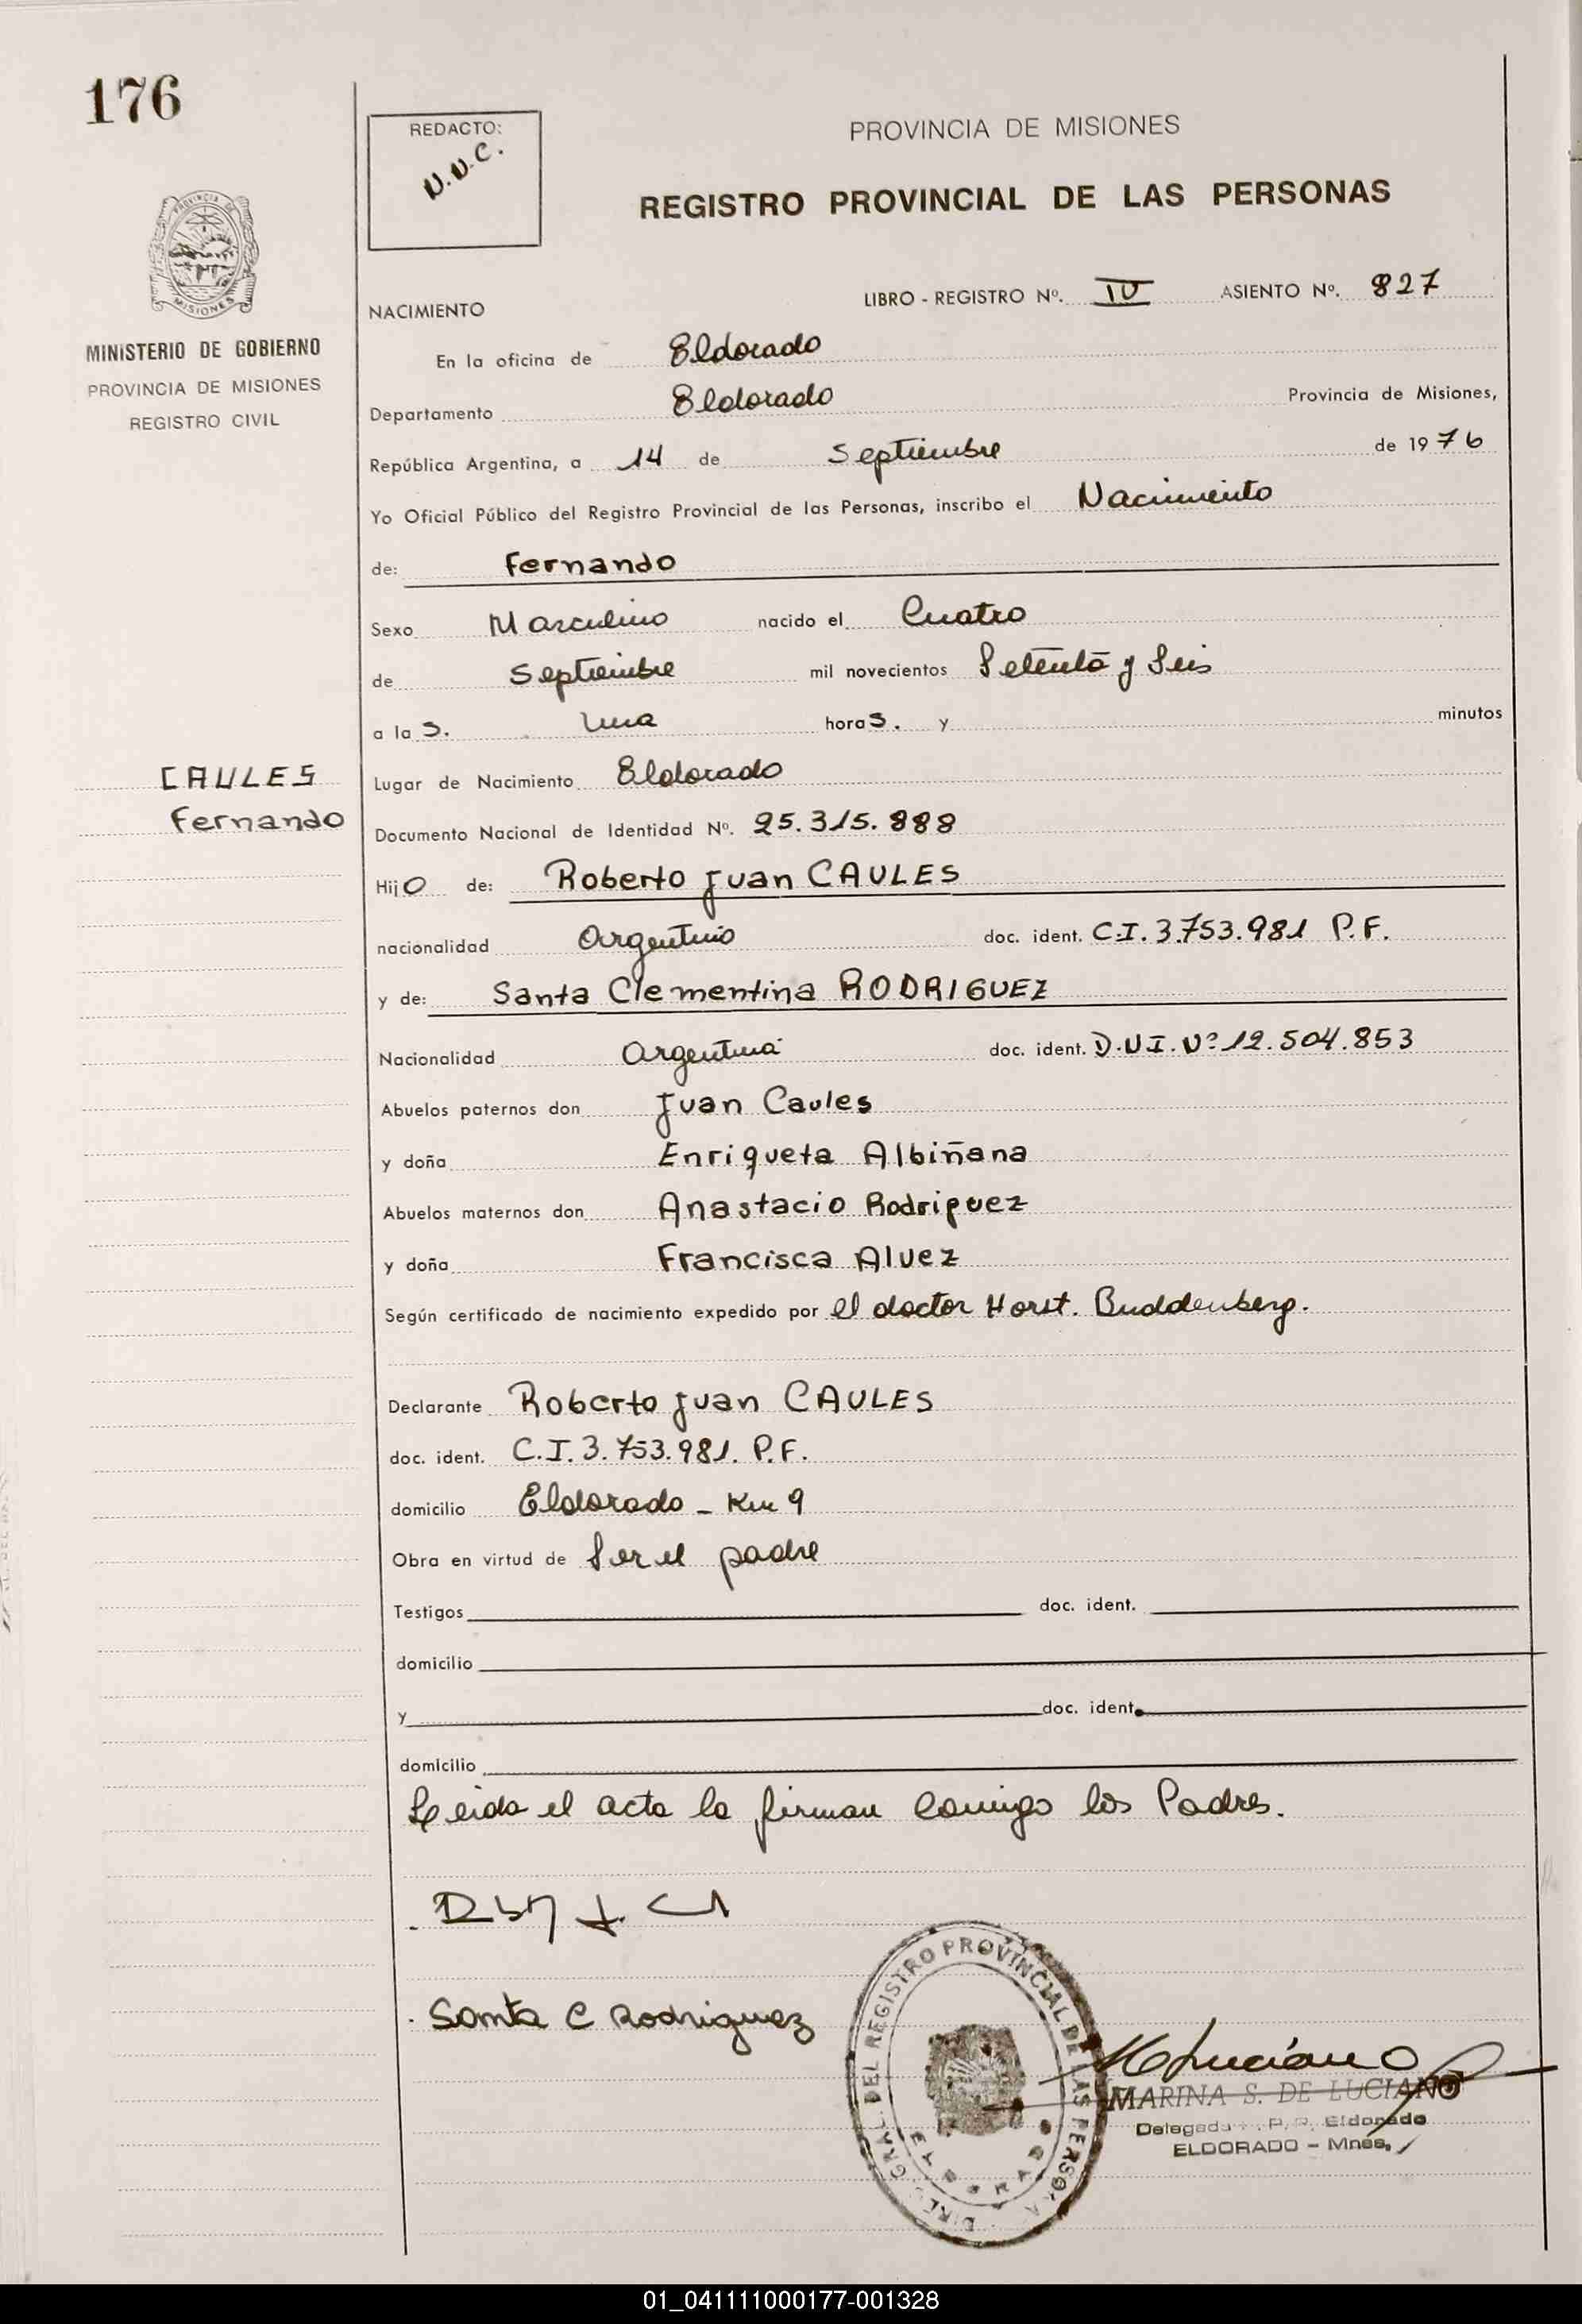 176
REDACTO:
N.N.C.
PROVINCIA DE MISIONES
REGISTRO PROVINCIAL DE LAS PERSONAS
MISIONES
MINISTERIO DE GOBIERNO
PROVINCIA DE MISIONES
REGISTRO CIVIL
LIBRO - REGISTRO Nº. IV ASIENTO Nº. 827
NACIMIENTO
En la oficina de Eldorado
Departamento Eldorado Provincia de Misiones,
República Argentina, a 14 de Septiembre de 1976
Yo Oficial Público del Registro Provincial de las Personas, inscribo el Nacimiento
de: Fernando
Sexo Masculino nacido el Cuatro
de Septiembre mil novecientos Setenta y Seis
a la s. una hora s. y minutos
CAULES
Fernando
Lugar de Nacimiento Eldorado
Documento Nacional de Identidad Nº. 25.315.888
Hijo de: Roberto Juan CAULES
nacionalidad Argentino doc. ident. C.I. 3.753.981 P.F.
y de: Santa Clementina RODRIGUEZ
Nacionalidad Argentina doc. ident. D.N.I. Nº 12.504.853
Abuelos paternos don Juan Caules
y doña Enriqueta Albiñana
Abuelos maternos don Anastacio Rodriguez
y doña Francisca Alvez
Según certificado de nacimiento expedido por el doctor Horst. Buddenberg.
Declarante Roberto Juan CAULES
doc. ident. C.I. 3.753.981. P.F.
domicilio Eldorado - Km 9
Obra en virtud de Ser el padre
Testigos doc. ident.
domicilio
y doc. ident.
domicilio
Leida el acta la firman conmigo los Padres.
Santa C Rodriguez
DIREC. GRAL. DEL REGISTRO PROVINCIAL DE LAS PERSONAS
ELDORADO
MLuciano
MARINA S. DE LUCIANO
Delegada R. P. P. Eldorado
ELDORADO - Mnes.
01_041111000177-001328